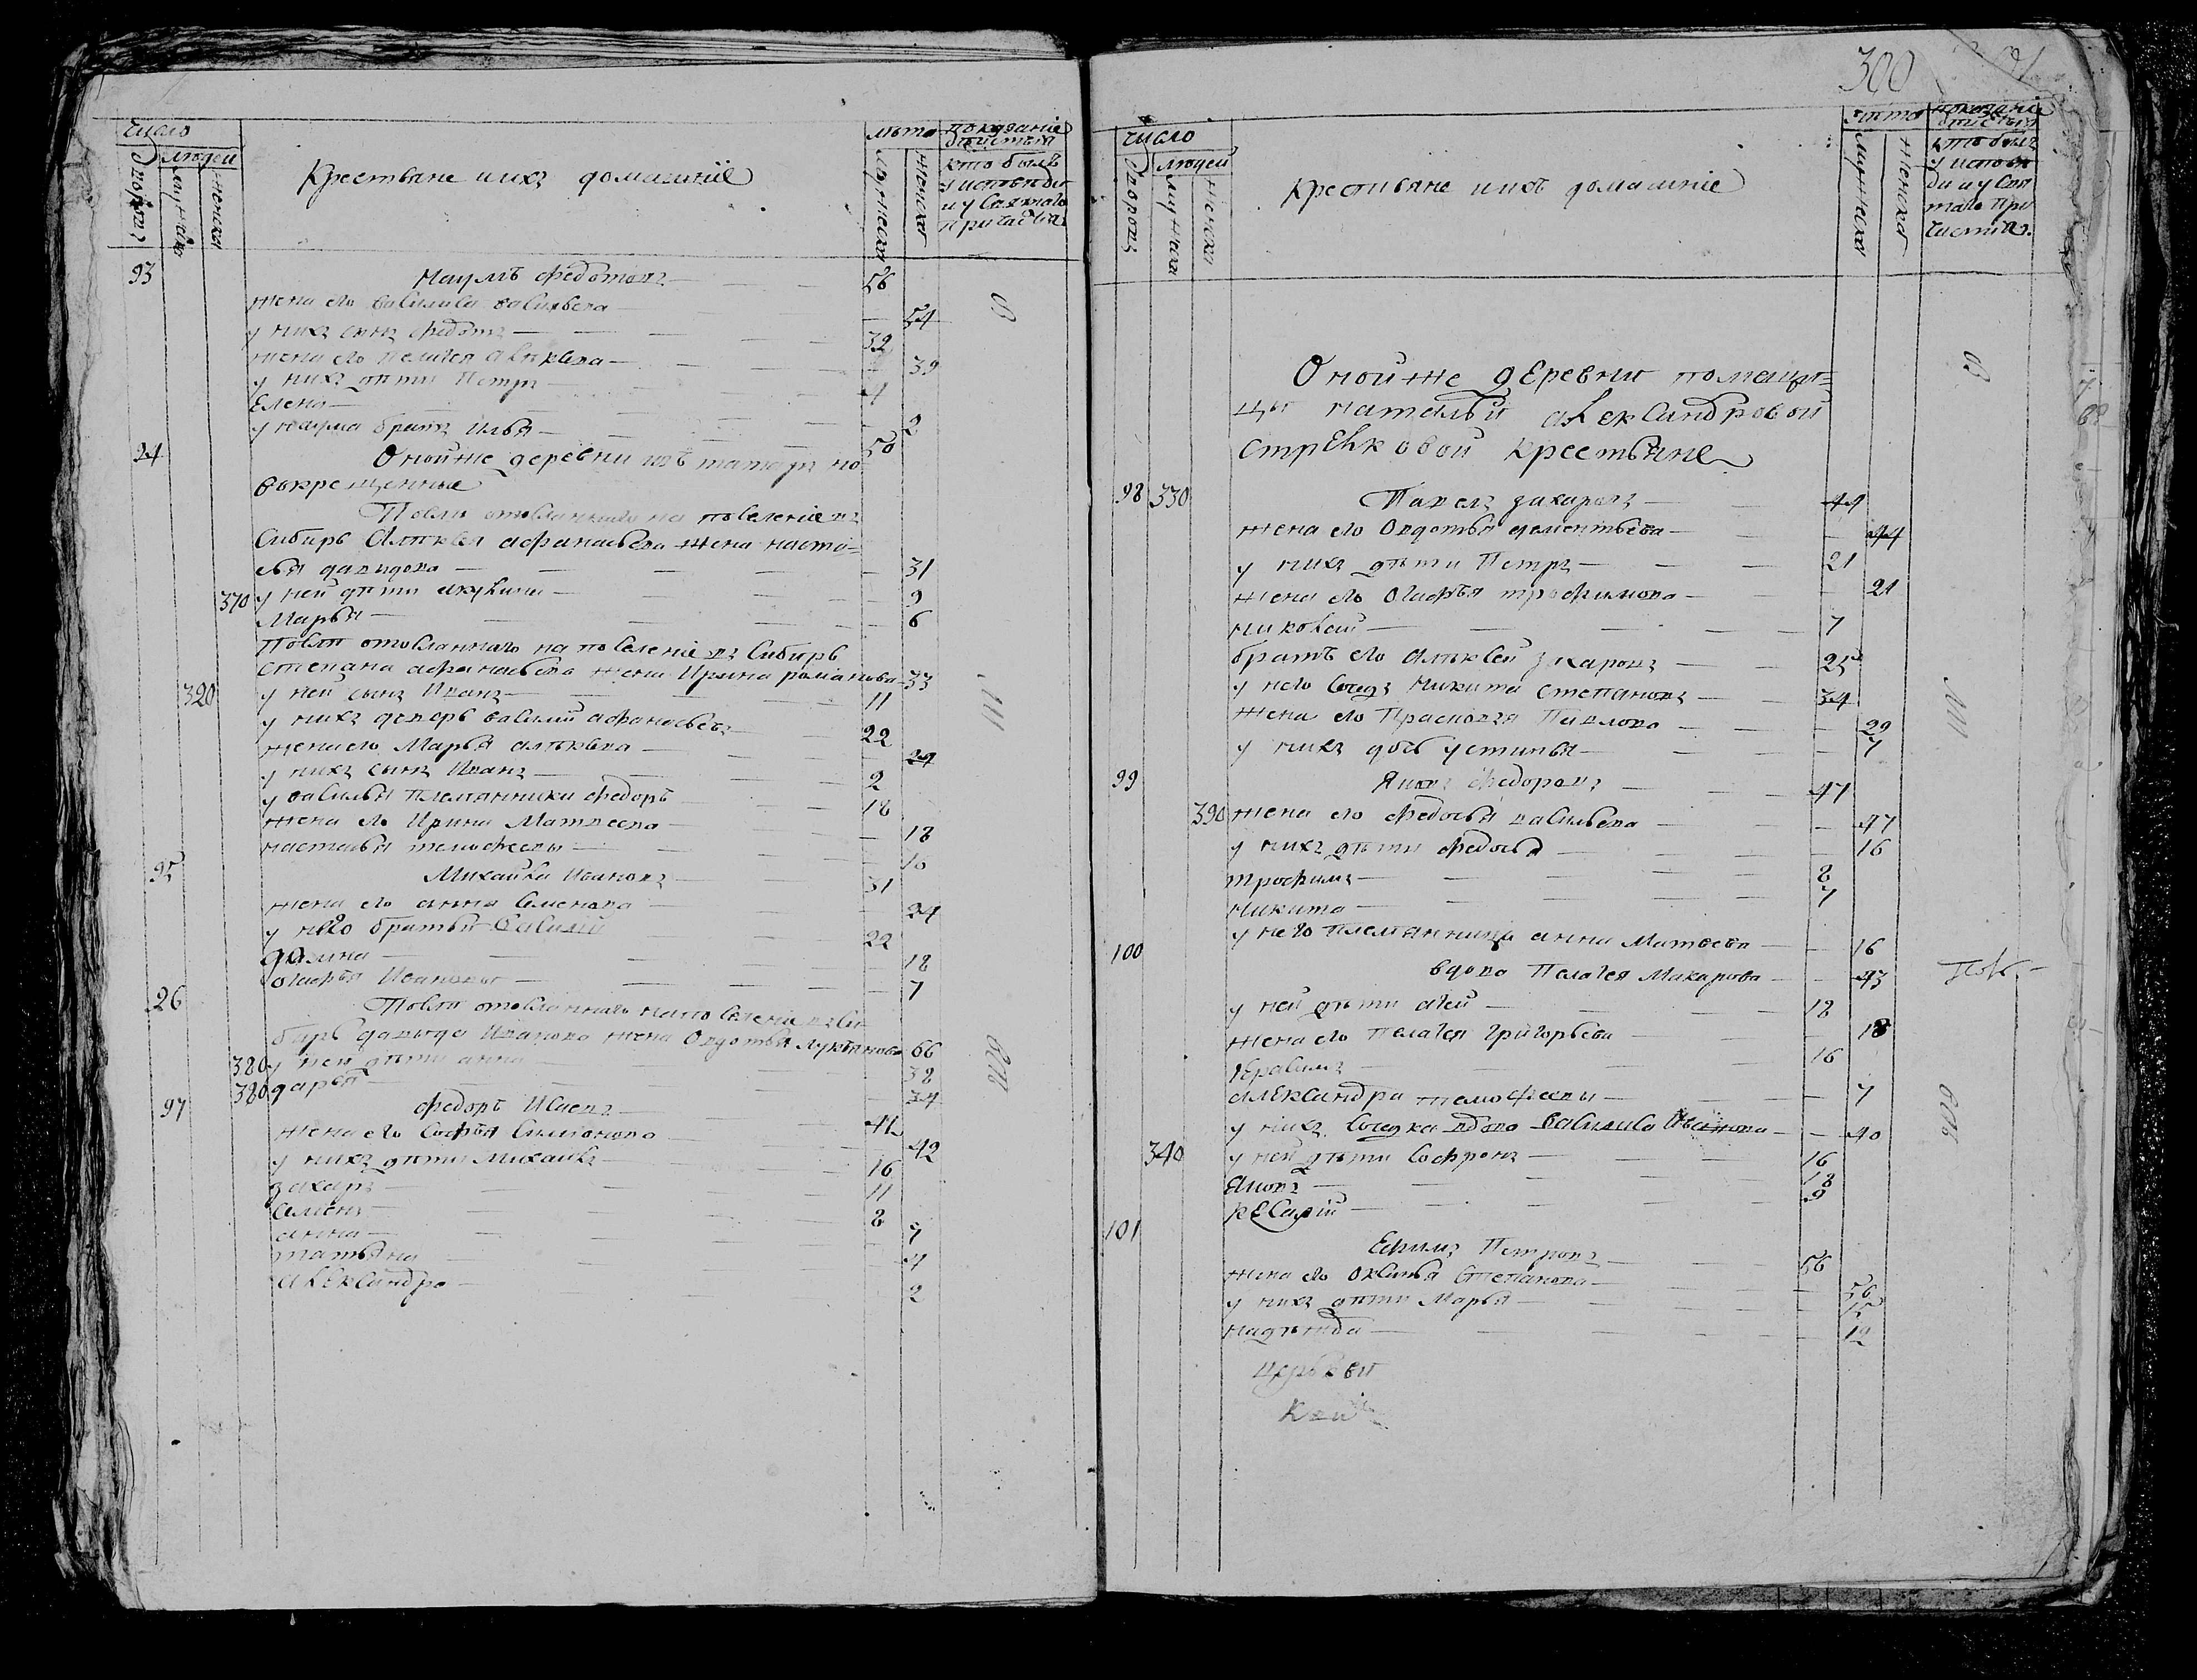 число
людей
дворовъ
мужеска
женска
Крестьяне и ихъ домашнїе
лѣта
мужеска
женска
показаніе
действа
кто былъ
у исповѣди
и у святаго
причастїя
93 Наумъ федотовъ — 56
жена его василиса васильева — 54
у нихъ сынъ федотъ — 32
жена его пелагея алѣксеева — 39
у нихъ дѣти Петръ — 4
Елена — 2
у наума братъ илья — 50
94 Оной же деревни изъ татаръ но=
вокрещенные
Посля отосланнаго на поселеніе въ
Сибирь Алѣксея афанасьева жена наста=
сья давыдова — 31
370 у ней дѣти — 9
Марья — 6
Посля отосланнаго на поселеніе въ Сибирь
степана афанасьева жена Ирина романова — 33
320 у ней сынъ Иванъ — 11
у нихъ деверь василий афанасьевъ — 22
жена его Марья алѣксеева — 24
у нихъ сынъ Иванъ — 2
у василья племянники федоръ — 18
жена его Ирина Матвеева — 18
настасья тимофеевы — 16
95 Михайла Ивановъ — 31
жена его анна Семенова — 24
у него братья василий — 22
галина — 18
агафья Ивановы — 7
96 Посля отосланнаго на поселение въ Си=
бирь давыда Иванова жена Овдотья Лукьянова 66
380 у ней дѣти анна — 38
380 дарья — 34
97 федоръ Исаевъ — 41
жена его Софья Симионова — 42
у нихъ дѣти Михаила — 16
захаръ — 11
Семенъ — 8
анна — 9
татьяна — 4
алЕксандра — 2
300
число
людей
дворовъ
мужеска
женска
Крестьяне и ихъ домашніе
лѣта
мужеска
женска
показаніе
действа
кто былъ
у исповѣ
ди и у свя
таго при
частія.
Оной же деревни помещи=
цы натальи александровой
стрЕлковой крестьяне
98 330 Павелъ захаровъ — 44
жена его Овдотья дементьева — 44
у нихъ дѣти Петръ — 21
жена его Агафья трофимова — 21
николай — 7
братъ его Алѣксей захаровъ — 25
у него соседъ никита степановъ — 34
жена его Прасковья Павлова — 29
у нихъ дочь устинья — 7
99 Яковъ федоровъ — 47
390 жена его федосья васильева — 47
у нихъ дѣти федосья — 16
трофимъ — 8
никита — 7
у него племянница анна Матвеева — 16
100 вдова Пелагея Макарова — 43
у ней дѣти агей — 18
жена его пелагея григорьева — 18
герасимъ — 16
алЕксандра тимофеевы — 7
у нихъ соседка вдова василиса Иванова — 40
340 у ней дѣти Софронъ — 16
Яковъ — 18
кЕсарій — 9
101 Ефимъ Петровъ — 56
жена его Оксинья Степанова — 56
у нихъ дѣти Марья — 15
надѣжда — 12
церкви